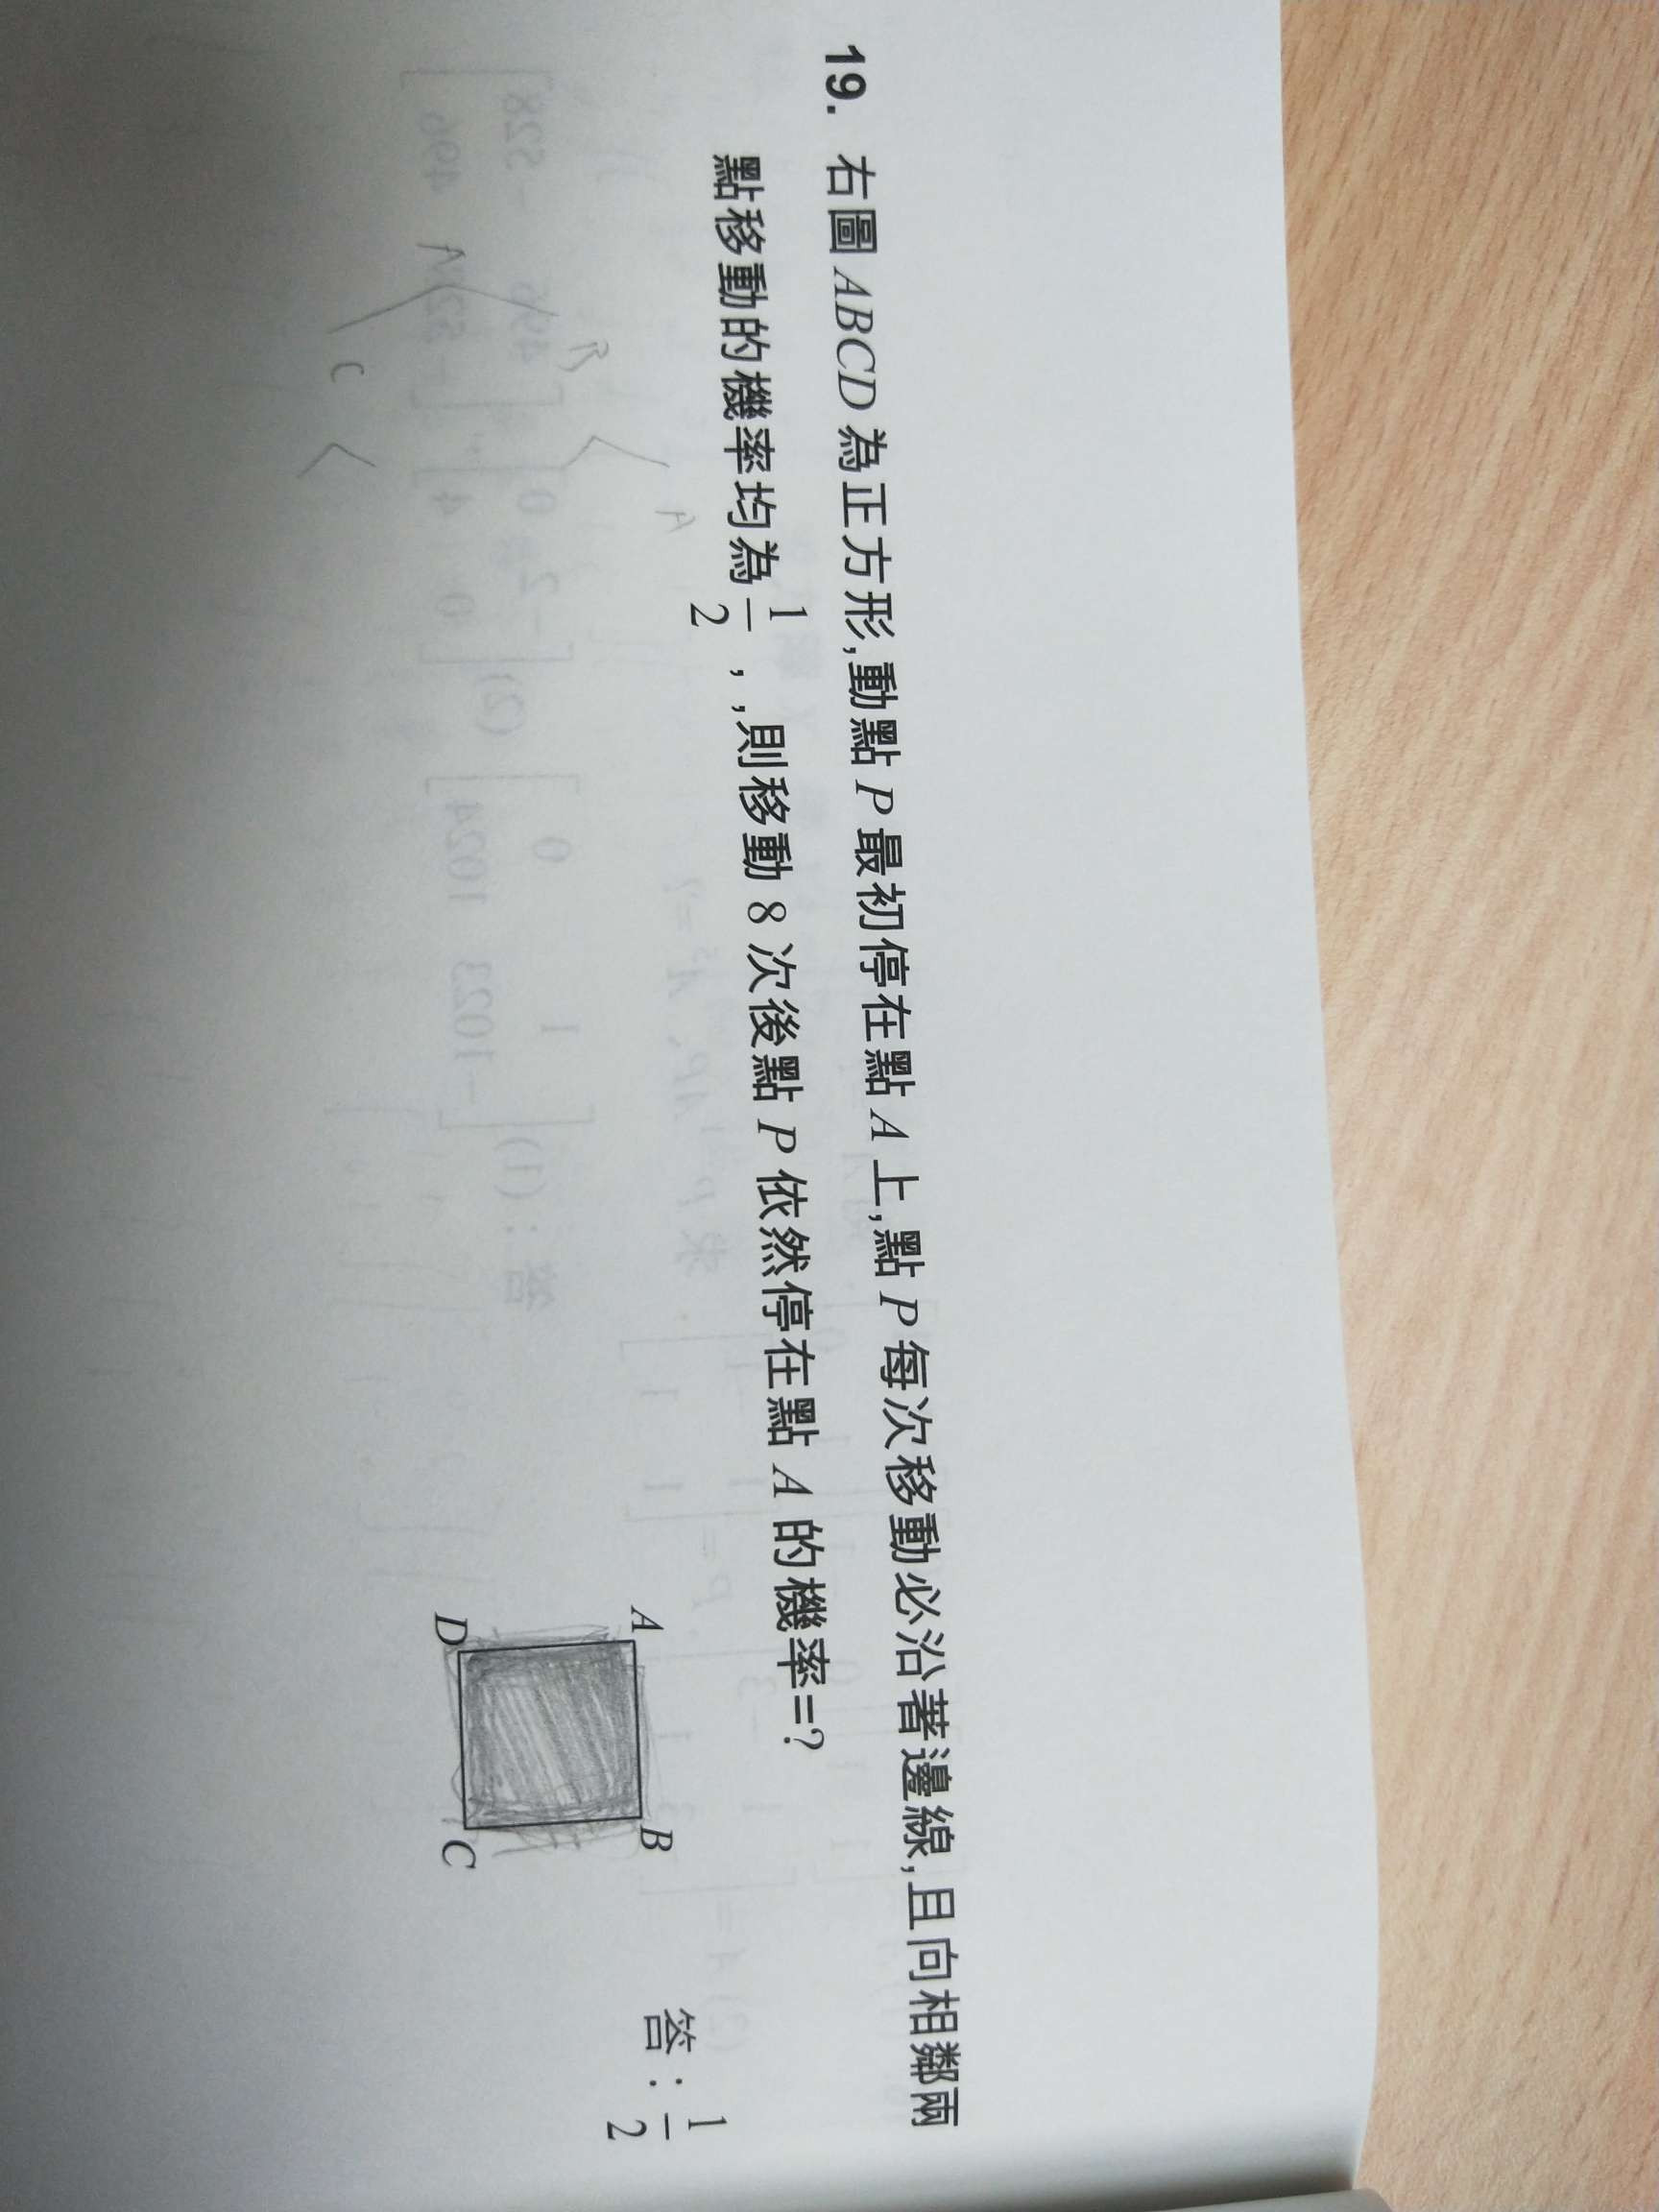 19. 右圖 ABCD 為正方形,動點 P 最初停在點 A 上,點 P 每次移動必沿著邊線,且向相鄰兩
點移動的機率均為 1/2 , ,則移動 8 次後點 P 依然停在點 A 的機率=?
A B
D C
答 : 1/2
A
B
C
A